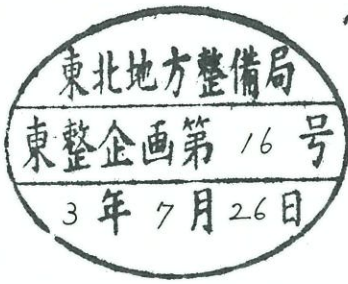 東北地方整備局
東整企画第 16 号
3 年 7 月 26 日